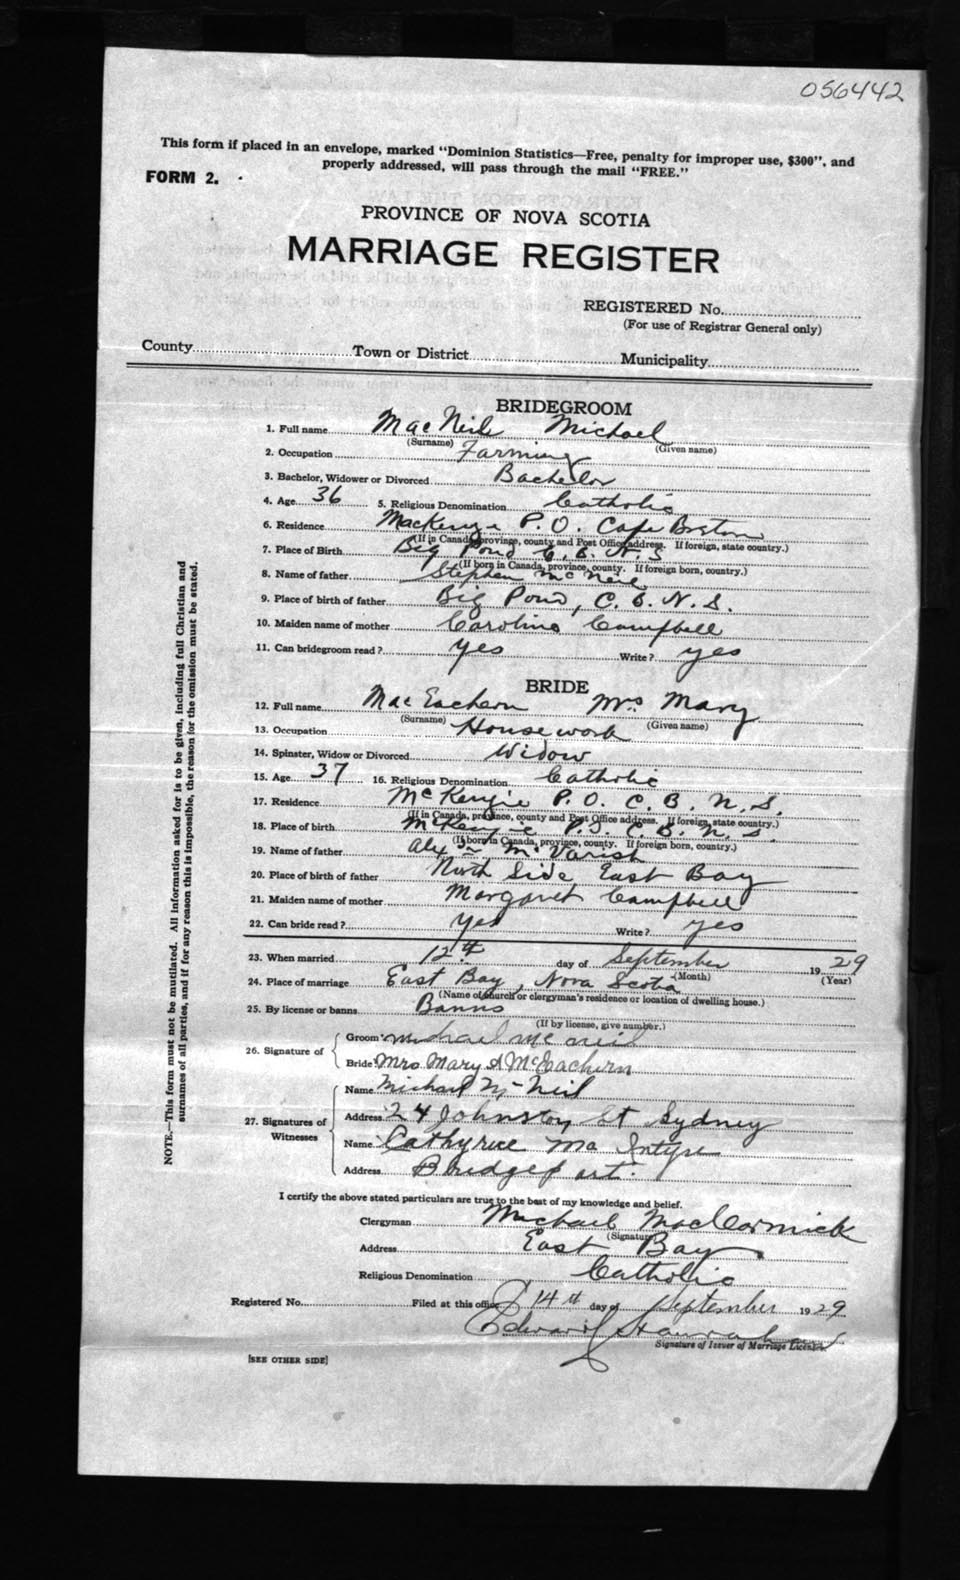 056442
This form if placed in an envelope, marked "Dominion Statistics—Free, penalty for improper use, $300", and
properly addressed, will pass through the mail "FREE."
FORM 2.
PROVINCE OF NOVA SCOTIA
MARRIAGE REGISTER
REGISTERED No.
(For use of Registrar General only)
County Town or District Municipality
BRIDEGROOM
1. Full name MacNeil Michael
(Surname) (Given name)
2. Occupation Farming
3. Bachelor, Widower or Divorced Bachelor
4. Age 36 5. Religious Denomination Catholic
6. Residence MacKenzie P.O. Cape Breton
(If in Canada, province, county and Post Office address. If foreign, state country.)
7. Place of Birth Big Pond C.B. N.S
(If born in Canada, province, county. If foreign born, country.)
8. Name of father Stephen McNeil
9. Place of birth of father Big Pond, C.B. N.S.
10. Maiden name of mother Caroline Campbell
11. Can bridegroom read? yes Write? yes
BRIDE
12. Full name MacEachern Mrs Mary
(Surname) (Given name)
13. Occupation Housework
14. Spinster, Widow or Divorced Widow
15. Age 37 16. Religious Denomination Catholic
17. Residence McKenzie P.O. C.B. N.S.
(If in Canada, province, county and Post Office address. If foreign, state country.)
18. Place of birth McKenzie C.B. N.S
(If born in Canada, province, county. If foreign born, country.)
19. Name of father Alex McVarish
20. Place of birth of father North Side East Bay
21. Maiden name of mother Margaret Campbell
22. Can bride read? yes Write? yes
23. When married 12th day of September 1929
(Month) (Year)
24. Place of marriage East Bay, Nova Scotia
(Name of church or clergyman's residence or location of dwelling house.)
25. By license or banns Banns
(If by license, give number.)
26. Signature of
Groom Michael McNeil
Bride Mrs Mary A McEachern
27. Signatures of Witnesses
Name Michael McNeil
Address 24 Johnston St Sydney
Name Mc Intyre
Address Bridgeport.
I certify the above stated particulars are true to the best of my knowledge and belief.
Clergyman Michael MacCormick
(Signature)
Address East Bay.
Religious Denomination Catholic
Registered No. Filed at this office 14th day of September 1929
Edward
Signature of Issuer of Marriage License
[SEE OTHER SIDE]
NOTE.—This form must not be mutilated. All information asked for is to be given, including full Christian and
surnames of all parties, and if for any reason this is impossible, the reason for the omission must be stated.